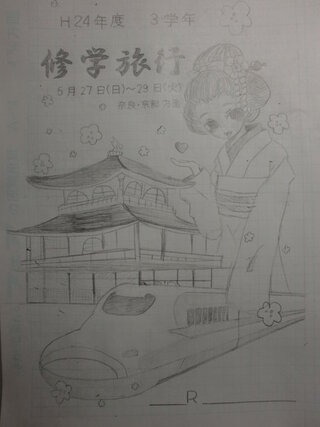 H24年度 3学年
修学旅行
5月27日(日)~29日(火)
奈良・京都方面
R